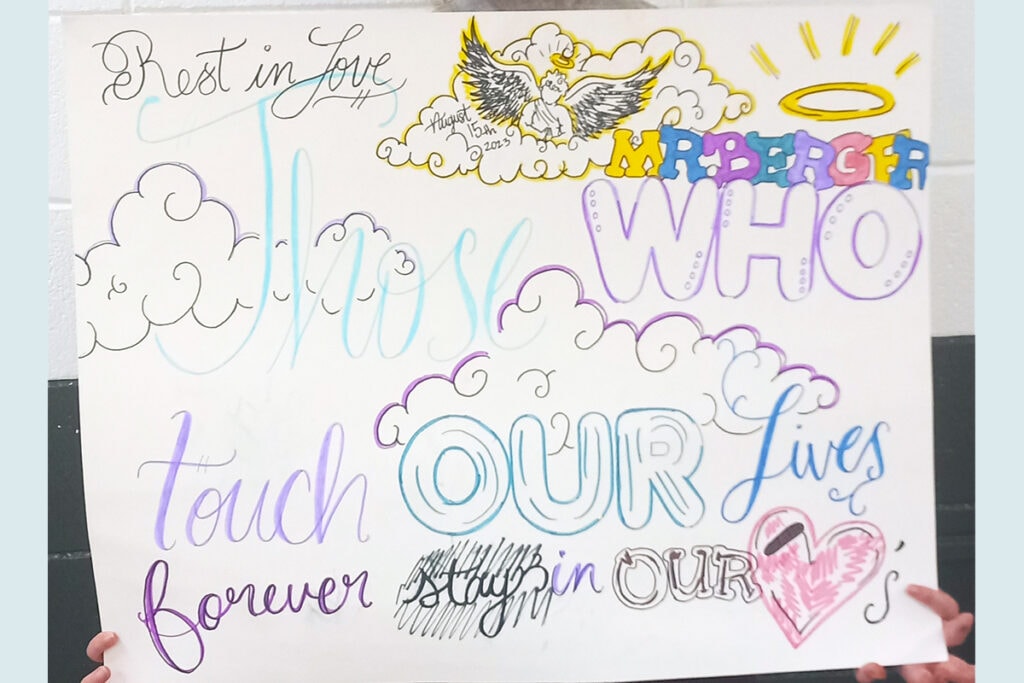 Rest in Love
August
15th
2023
MR. BERGER
Those WHO
touch OUR Lives
forever stay in OUR 's